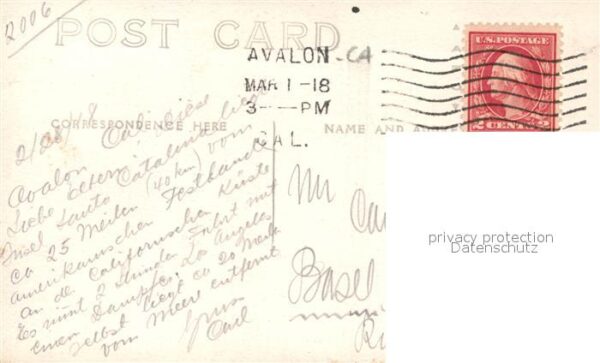 2006
POST CARD
AVALON CA
MAR 1-18
3 PM
CAL.
U.S. POSTAGE
2 CENTS 2
CORRESPONDENCE HERE
NAME AND
Avalon Cal
Liebe Eltern
Insel Santa Catalina vom
ca 25 Meilen (40 km) vom
amerikanischen Festlande
an der Californischen Küste
Es nimt 2 Stunden Fahrt mit
einem Dampfer. Los Angeles
selbst liegt ca 20 Meilen
vom Meere entfernt
Gruss
Carl
Mr
Basel
privacy protection
Datenschutz